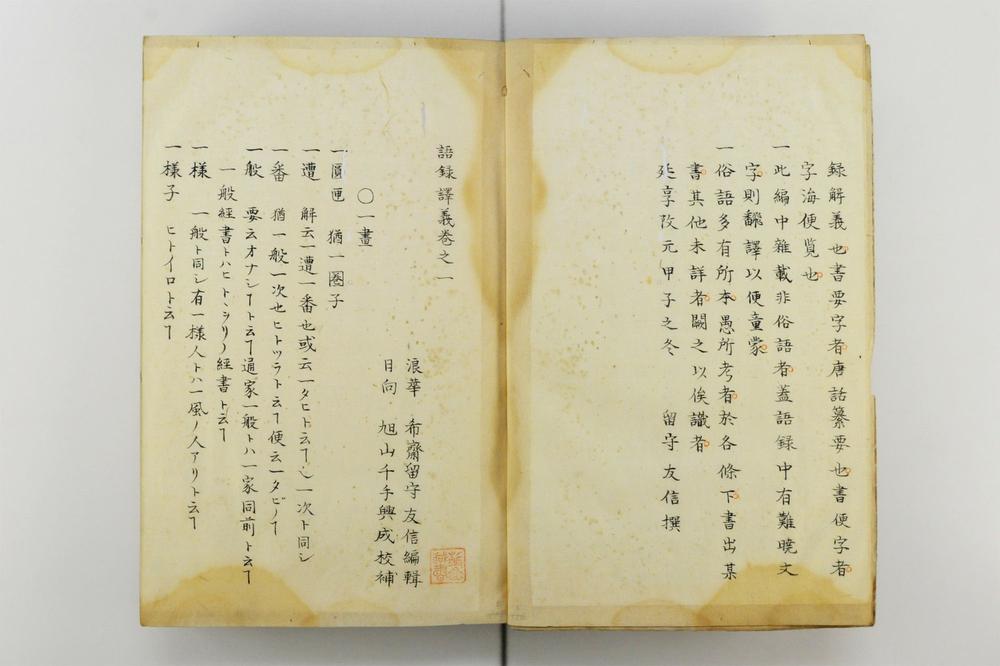 録解義也書要字者唐話纂要也書便字者
字海便覧也
一此編中雜載非俗語者蓋語録中有難曉文
字則飜譯以便童蒙
一俗語多有所本愚所考者於各條下書出某
書其他未詳者闕之以俟識者
延享改元甲子之冬 留守友信撰
語録譯義巻之一
浪華 希齋留守友信編輯
日向 旭山千手興成校補
〇一畫
一匾匣 猶一圈子
一遭 解云一遭一番也或云一タヒト云ヿ也一次ト同シ
一番 猶一般一次也ヒトツラト云ヿ便云一タビノヿ
一般 要云オナシヿト云ヿ通家一般トハ一家同前ト云ヿ
一般經書トハヒトヽヲリノ經書ト云ヿ
一樣 一般ト同シ有一樣人トハ一風ノ人アリト云ヿ
一樣子 ヒトイロト云ヿ